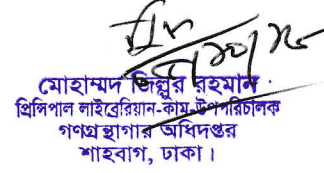 মোহাম্মদ জিল্লুর রহমান
প্রিন্সিপাল লাইব্রেরিয়ান-কাম-উপপরিচালক
গণগ্রন্থাগার অধিদপ্তর
শাহবাগ, ঢাকা।